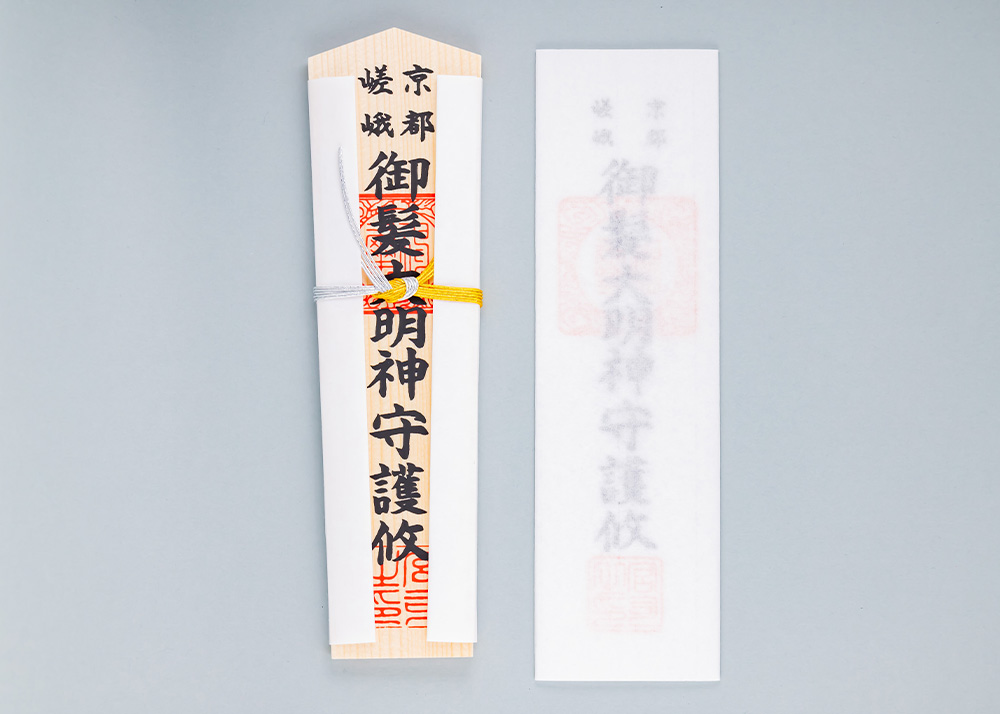 京都
嵯峨
御髪大明神守護攸
京都
嵯峨
御髪大明神守護攸